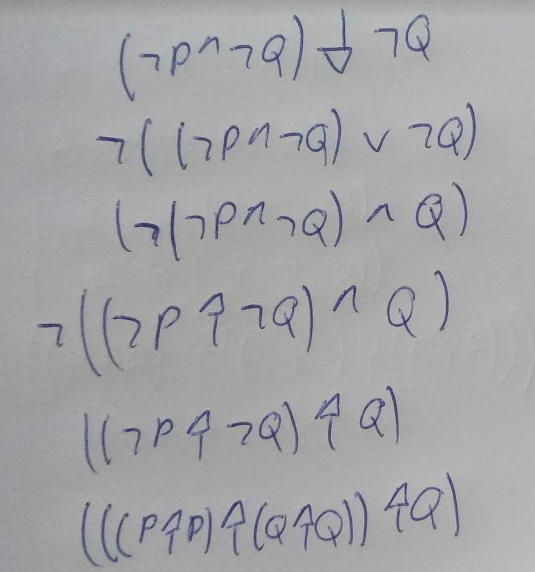 (¬P∧¬Q)↓¬Q
¬((¬P∧¬Q)∨¬Q)
(¬(¬P∧¬Q)∧Q)
¬((¬P↑¬Q)∧Q)
((¬P↑¬Q)↑Q)
(((P↑P)↑(Q↑Q))↑Q)